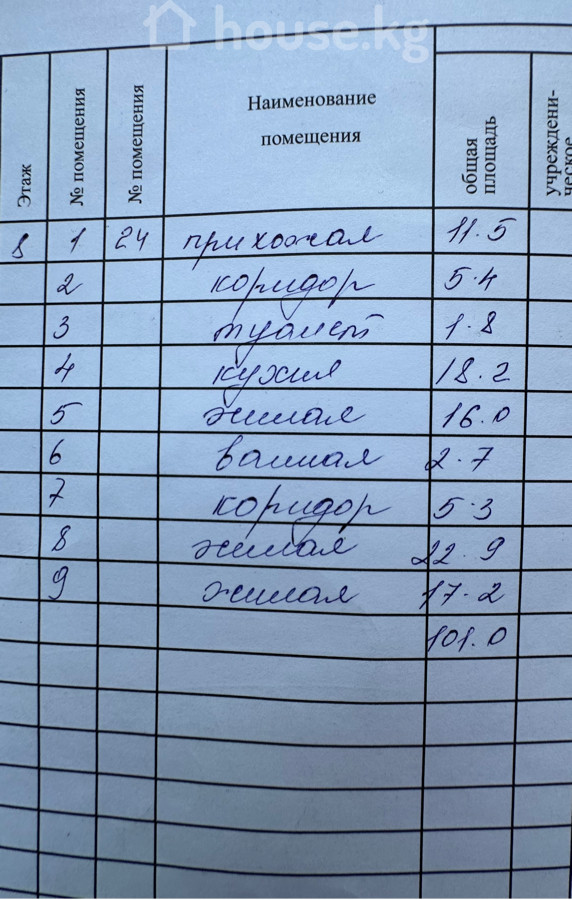 house.kg
Этаж
№ помещения
№ помещения
Наименование
помещения
общая
площадь
учреждени-
ческое
8 1 24 прихожая 11.5
2 коридор 5.4
3 туалет 1.8
4 кухня 18.2
5 жилая 16.0
6 ванная 2.7
7 коридор 5.3
8 жилая 22.9
9 жилая 17.2
101.0